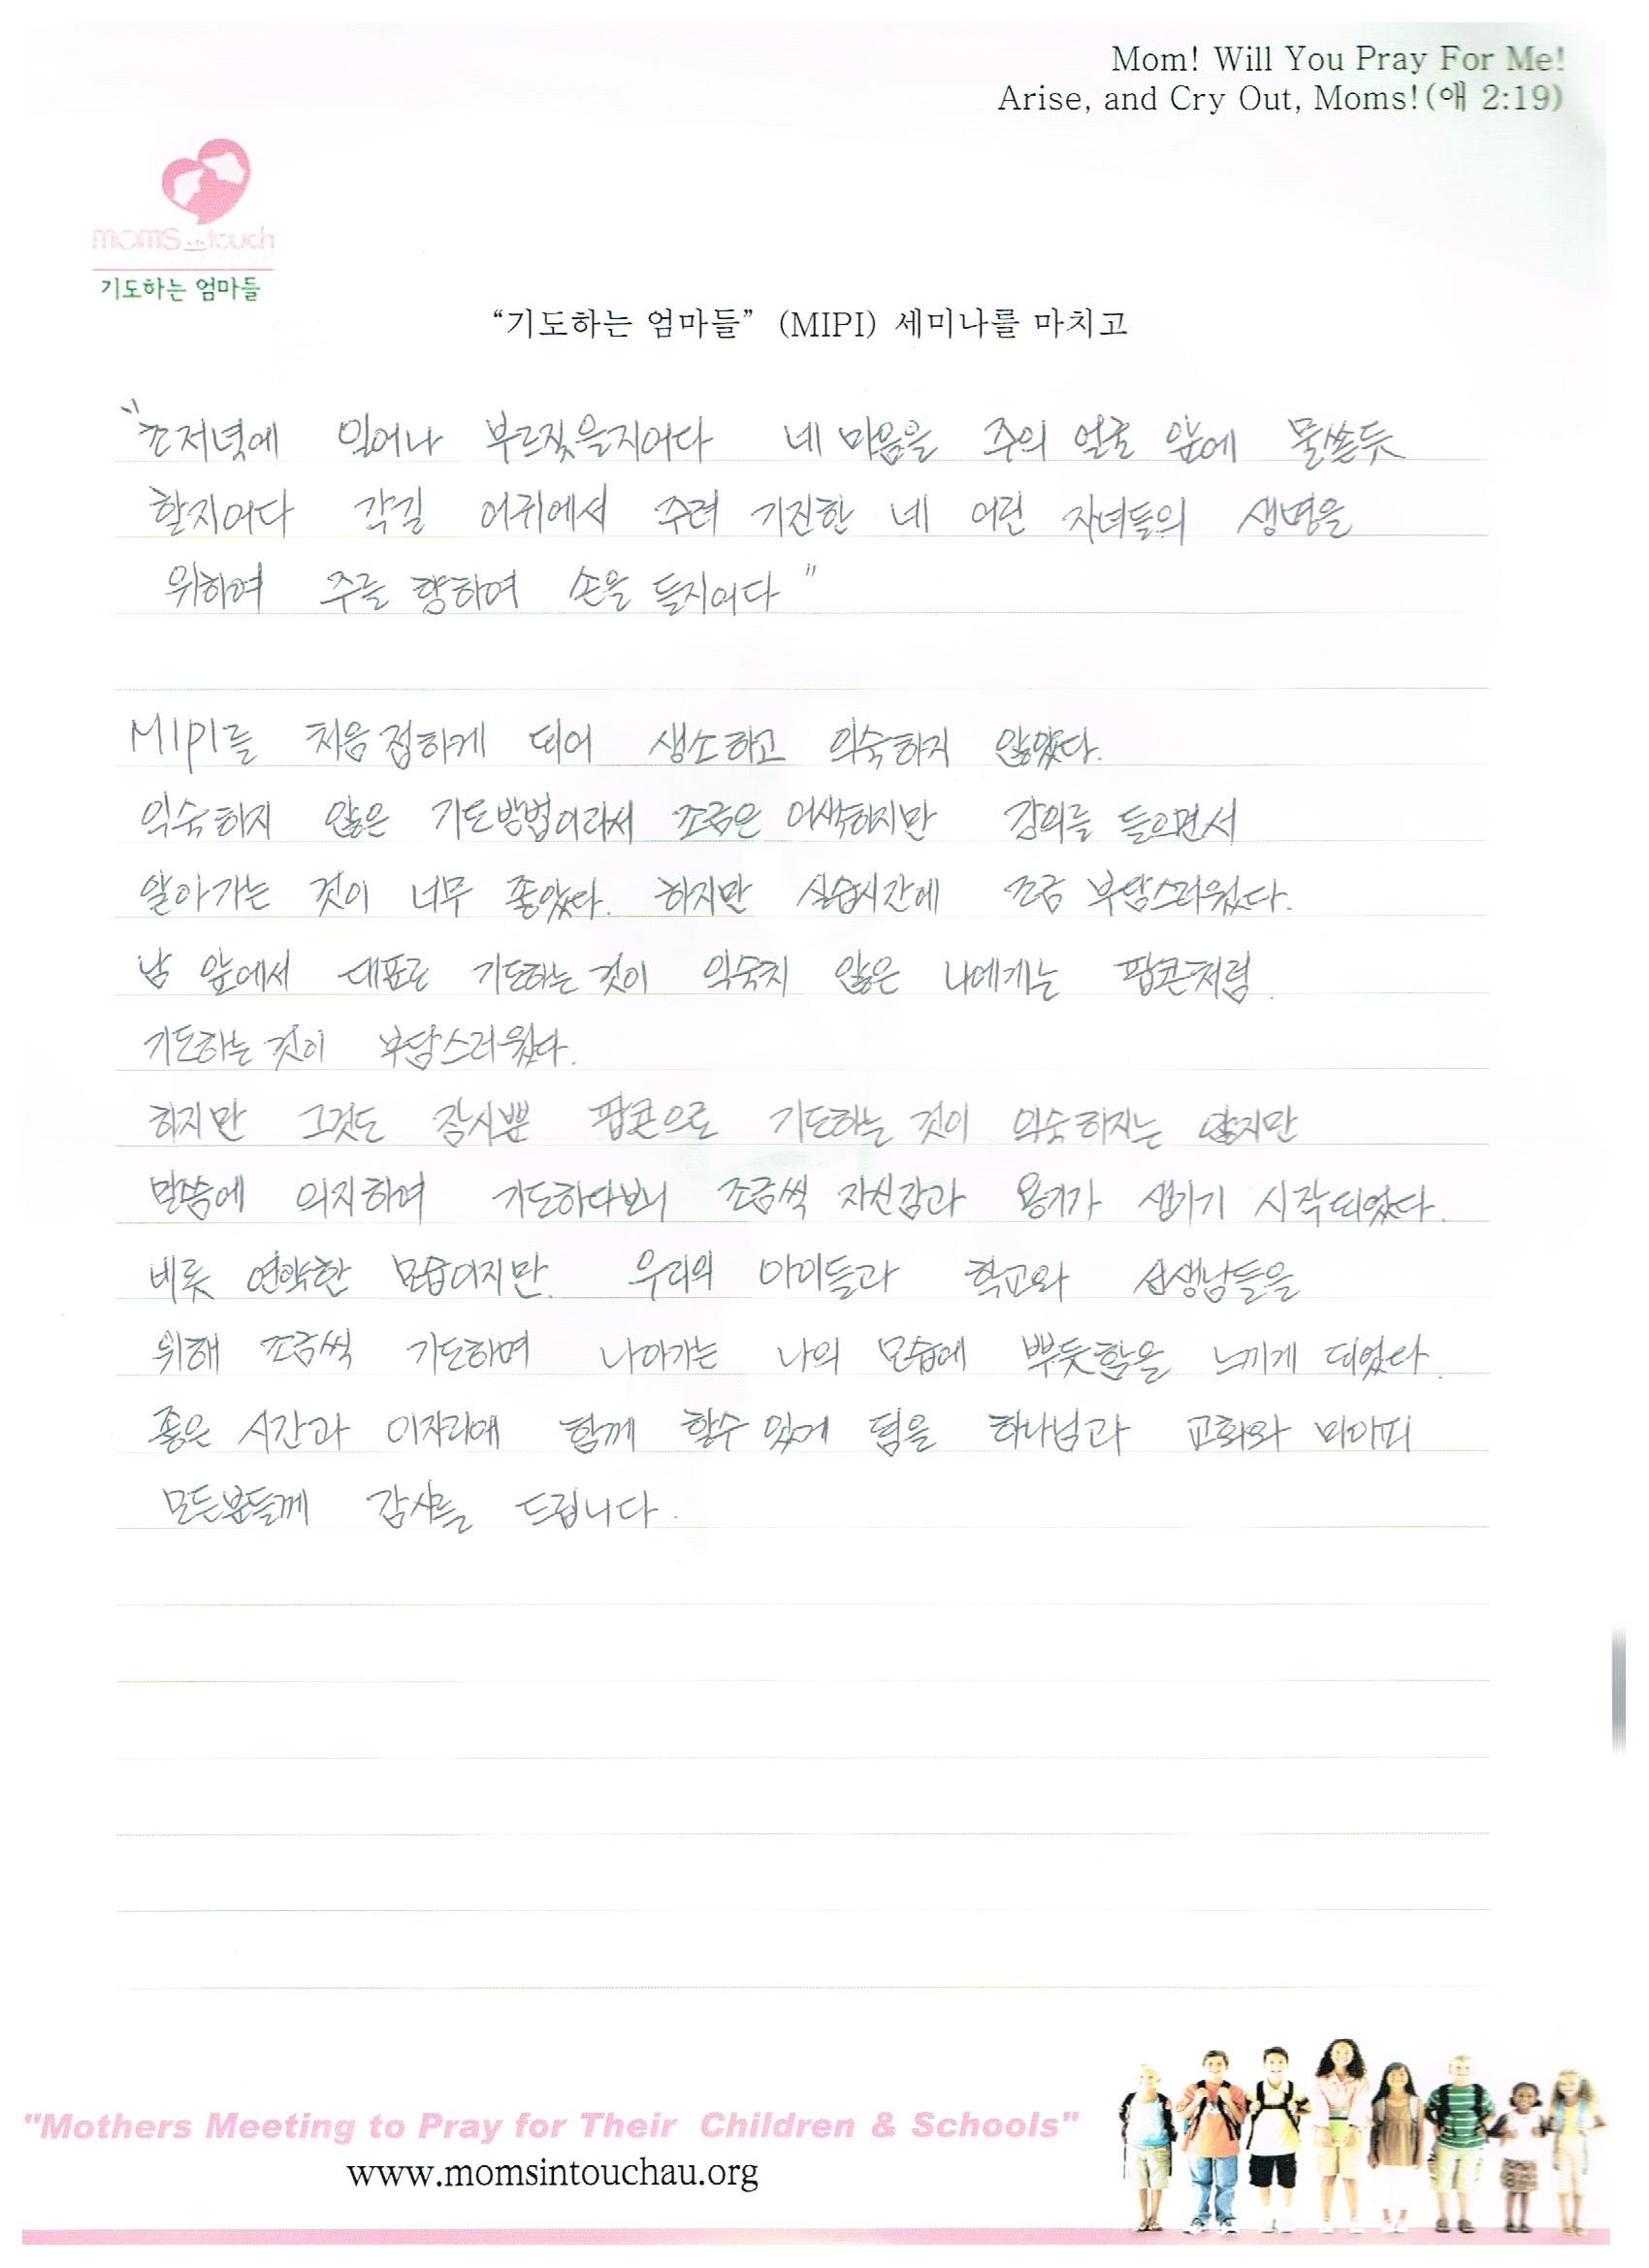 Mom! Will You Pray For Me!
Arise, and Cry Out, Moms!(애 2:19)
moms in touch
기도하는 엄마들
“기도하는 엄마들” (MIPI) 세미나를 마치고
"초저녁에 일어나 부르짖을지어다 네 마음을 주의 얼굴 앞에 물쏟듯
할지어다 각길 어귀에서 주려 기진한 네 어린 자녀들의 생명을
위하여 주를 향하여 손을 들지어다"
MIPI를 처음 접하게 되어 생소하고 익숙하지 않았다.
익숙하지 않은 기도방법이라서 조금은 어색하지만 강의를 들으면서
알아가는 것이 너무 좋았다. 하지만 실습시간에 조금 부담스러웠다.
남 앞에서 대표로 기도하는 것이 익숙치 않은 나에게는 팝콘처럼
기도하는 것이 부담스러웠다.
하지만 그것도 잠시뿐 팝콘으로 기도하는 것이 익숙하지는 않지만
말씀에 의지하여 기도하다보니 조금씩 자신감과 용기가 생기기 시작되었다.
비록 연약한 모습이지만. 우리의 아이들과 학교와 선생님들을
위해 조금씩 기도하며 나아가는 나의 모습에 뿌듯함을 느끼게 되었다.
좋은 시간과 이자리에 함께 할수 있게 됨을 하나님과 교회와 미아피
모든분들께 감사를 드립니다.
"Mothers Meeting to Pray for Their Children & Schools"
www.momsintouchau.org